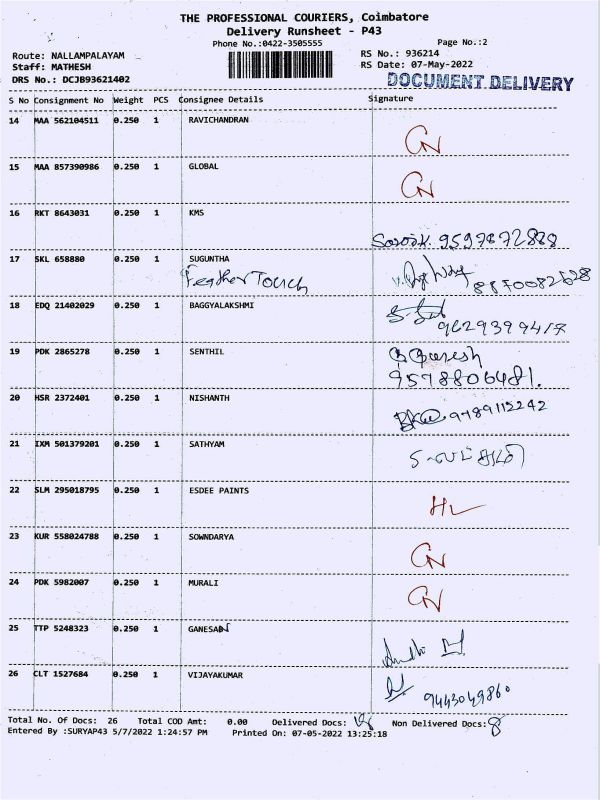 THE PROFESSIONAL COURIERS, Coimbatore
Delivery Runsheet - P43
Phone No.:0422-3505555
Page No.:2
Route: NALLAMPALAYAM
RS No.: 936214
Staff: MATHESH
RS Date: 07-May-2022
DRS No.: DCJB93621402
DOCUMENT DELIVERY
S No Consignment No Weight PCS Consignee Details Signature
14 MAA 562104511 0.250 1 RAVICHANDRAN
15 MAA 857390986 0.250 1 GLOBAL
16 RKT 8643031 0.250 1 KMS
17 SKL 658880 0.250 1 SUGUNTHA
Feather Touch 8870082528
18 EDQ 21402029 0.250 1 BAGGYALAKSHMI
9629399417
19 PDK 2865278 0.250 1 SENTHIL
9578806481.
20 HSR 2372401 0.250 1 NISHANTH
9789112242
21 IXM 501379201 0.250 1 SATHYAM
22 SLM 295018795 0.250 1 ESDEE PAINTS
23 KUR 558024788 0.250 1 SOWNDARYA
24 PDK 5982007 0.250 1 MURALI
25 TTP 5248323 0.250 1 GANESAN
26 CLT 1527684 0.250 1 VIJAYAKUMAR
9443049860
Total No. Of Docs: 26 Total COD Amt: 0.00 Delivered Docs: 18 Non Delivered Docs: 8
Entered By :SURYAP43 5/7/2022 1:24:57 PM Printed On: 07-05-2022 13:25:18